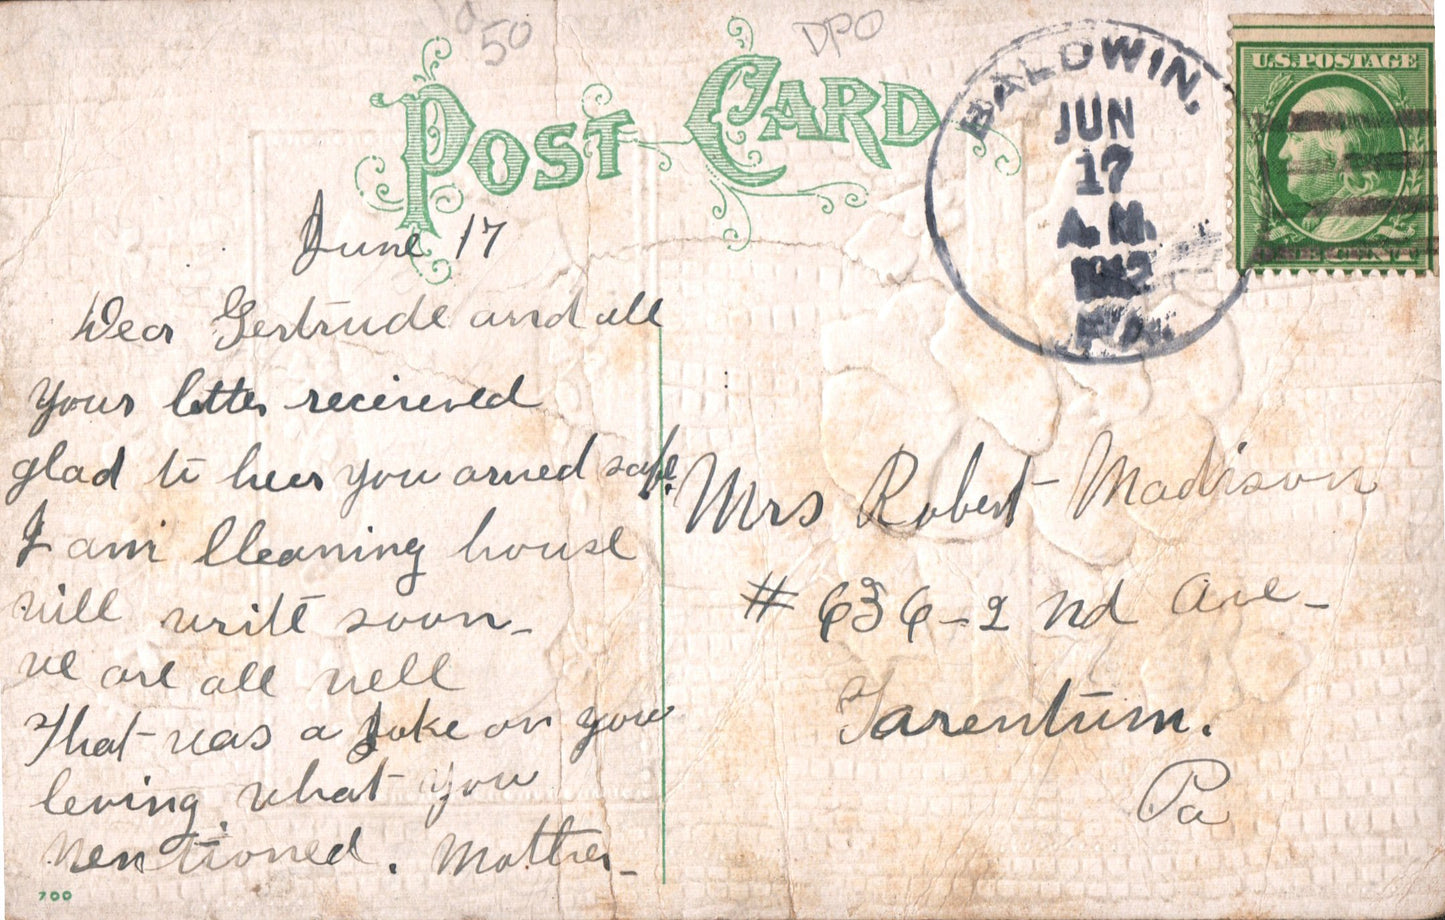 50
DPO
POST CARD
BALDWIN,
JUN
17
A.M.
1912
PA.
U.S. POSTAGE
ONE CENT
June 17
Dear Gertrude and all
your letter recieved
glad to hear you arived safe.
I am Cleaning house
will write soon -
we are all well
That was a Joke on you
leving what you
mentioned. Mother -
Mrs Robert Madison
# 636 - 2nd Ave -
Tarentum.
Pa
700